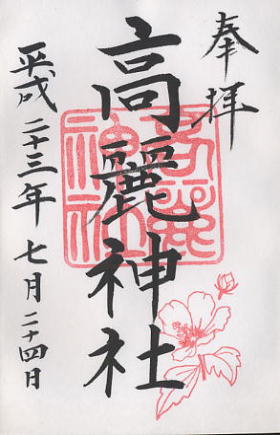 奉拝
高麗神社
高麗神社
平成二十三年七月二十四日